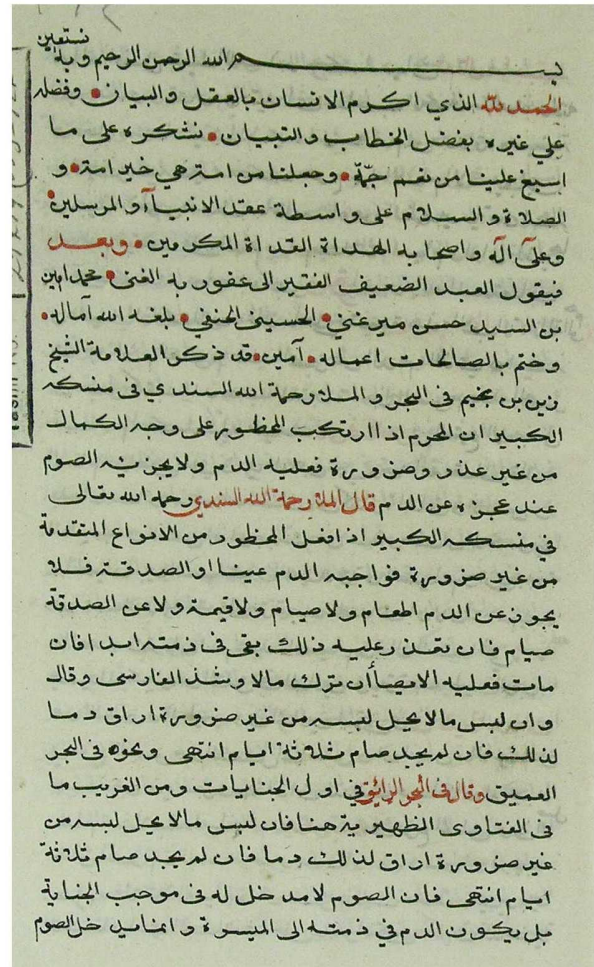 بسم الله الرحمن الرحيم وبه نستعين
الحمد لله الذي اكرم الانسان بالعقل والبيان • وفضله
علي غيره بفضل الخطاب والتبيان • نشكره على ما
اسبغ علينا من نعم جمّة • وجعلنا من امة هي خير امة • و
الصلاة والسلام على واسطة عقد الانبياء والمرسلين •
وعلى آله واصحابه الهداة القداة المكرمين • وبعد
فيقول العبد الضعيف الفقير الى عفو ربه الغني • محمد امين
بن السيد حسن ميرغني • الحسيني الحنفي • بلغه الله آماله •
وختم بالصالحات اعماله • آمين • قد ذكر العلامة الشيخ
زين بن نجيم في البحر والملا رحمة الله السندي في منسكه
الكبير ان المحرم اذا ارتكب المحظور على وجه الكمال
من غير عذر وضرورة فعليه الدم ولا يجزيه الصوم
عند عجزه عن الدم قال الملا رحمة الله السندي رحمه الله تعالى
في منسكه الكبير اذا فعل المحظور من الانواع المتقدمة
من غير ضرورة فواجبه الدم عينا او الصدقة فلا
يجوز عن الدم اطعام ولا صيام ولا قيمة ولا عن الصدقة
صيام فان تعذر عليه ذلك بقى في ذمته ابدا فان
مات فعليه الايصا أن ترك مالا وشذ الفارسي وقال
وان لبس مالا يحل لبسه من غير ضرورة اراق دما
لذلك فان لم يجد صام ثلاثة ايام انتهى ونحوه في البحر
العميق وقال في البحر الرائق في اول الجنايات ومن الغريب ما
في الفتاوى الظهيرية هنا فان لبس مالا يحل لبسه من
غير ضرورة اراق لذلك دما فان لم يجد صام ثلاثة
ايام انتهى فان الصوم لا مدخل له في موجب الجناية
بل يكون الدم في ذمته الى الميسرة وانما يدخل الصوم